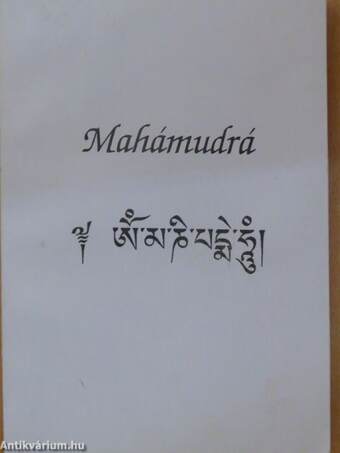 Mahámudrá
༄ ཨོཾ་མ་ཎི་པདྨེ་ཧཱུྃ།
Antikvárium.hu